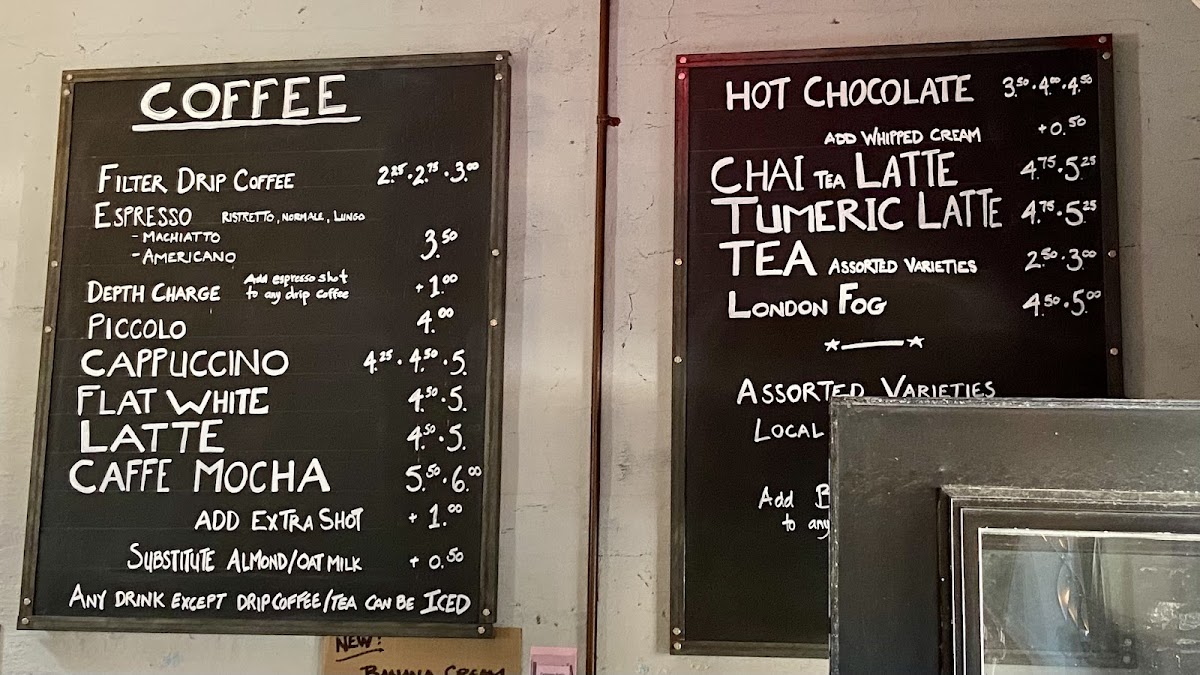 COFFEE
FILTER DRIP COFFEE 2.25 · 2.75 · 3.00
ESPRESSO RISTRETTO, NORMALE, LUNGO
- MACHIATTO 3.50
- AMERICANO
DEPTH CHARGE Add espresso shot to any drip coffee + 1.00
PICCOLO 4.00
CAPPUCCINO 4.25 · 4.50 · 5.
FLAT WHITE 4.50 · 5.
LATTE 4.50 · 5.
CAFFE MOCHA 5.50 · 6.00
ADD EXTRA SHOT + 1.00
SUBSTITUTE ALMOND/OAT MILK + 0.50
ANY DRINK EXCEPT DRIP COFFEE/TEA CAN BE ICED
NEW!
BANANA CREAM
HOT CHOCOLATE 3.50 · 4.00 · 4.50
ADD WHIPPED CREAM + 0.50
CHAI TEA LATTE 4.75 · 5.25
TUMERIC LATTE 4.75 · 5.25
TEA ASSORTED VARIETIES 2.50 · 3.00
LONDON FOG 4.50 · 5.00
ASSORTED VARIETIES
LOCAL
Add
to any